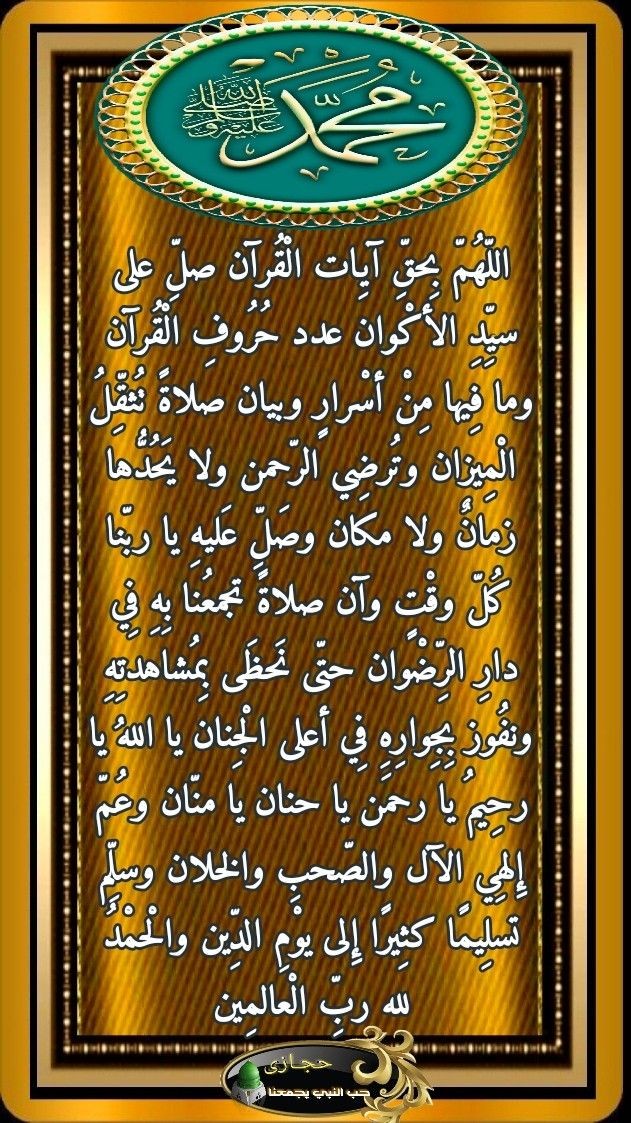 محمد
صلى الله عليه وسلم
اللّهُمّ بِحقِّ آيِات الْقُرآن صلِّ على
سيِّدِ الأكْوان عدد حُرُوفِ الْقُرآن
وما فِيها مِنْ أسْرارٍ وبيان صلاةً تُثقِّلُ
الْمِيزان وتُرضِي الرّحمن ولا يَحُدُّها
زمانٌ ولا مكان وصَلِّ عَليهِ يا ربّنا
كُلّ وقْتٍ وآن صلاةً تجمعُنا بِهِ فِي
دارِ الرِّضْوان حتّى نَحظَى بِمُشاهدتِهِ
ونفُوز بِجِوارِهِ فِي أعلى الْجِنان يا اللهُ يا
رحِيمُ يا رحمَن يا حنان يا منّان وعُمّ
إِلهِي الآل والصّحبِ والخلان وسلِّمِ
تسلِيمًا كثِيرًا إِلى يوْمِ الدِّين والْحمْدُ
لله ربِّ الْعالمِين
حجازى
حب النبي يجمعنا